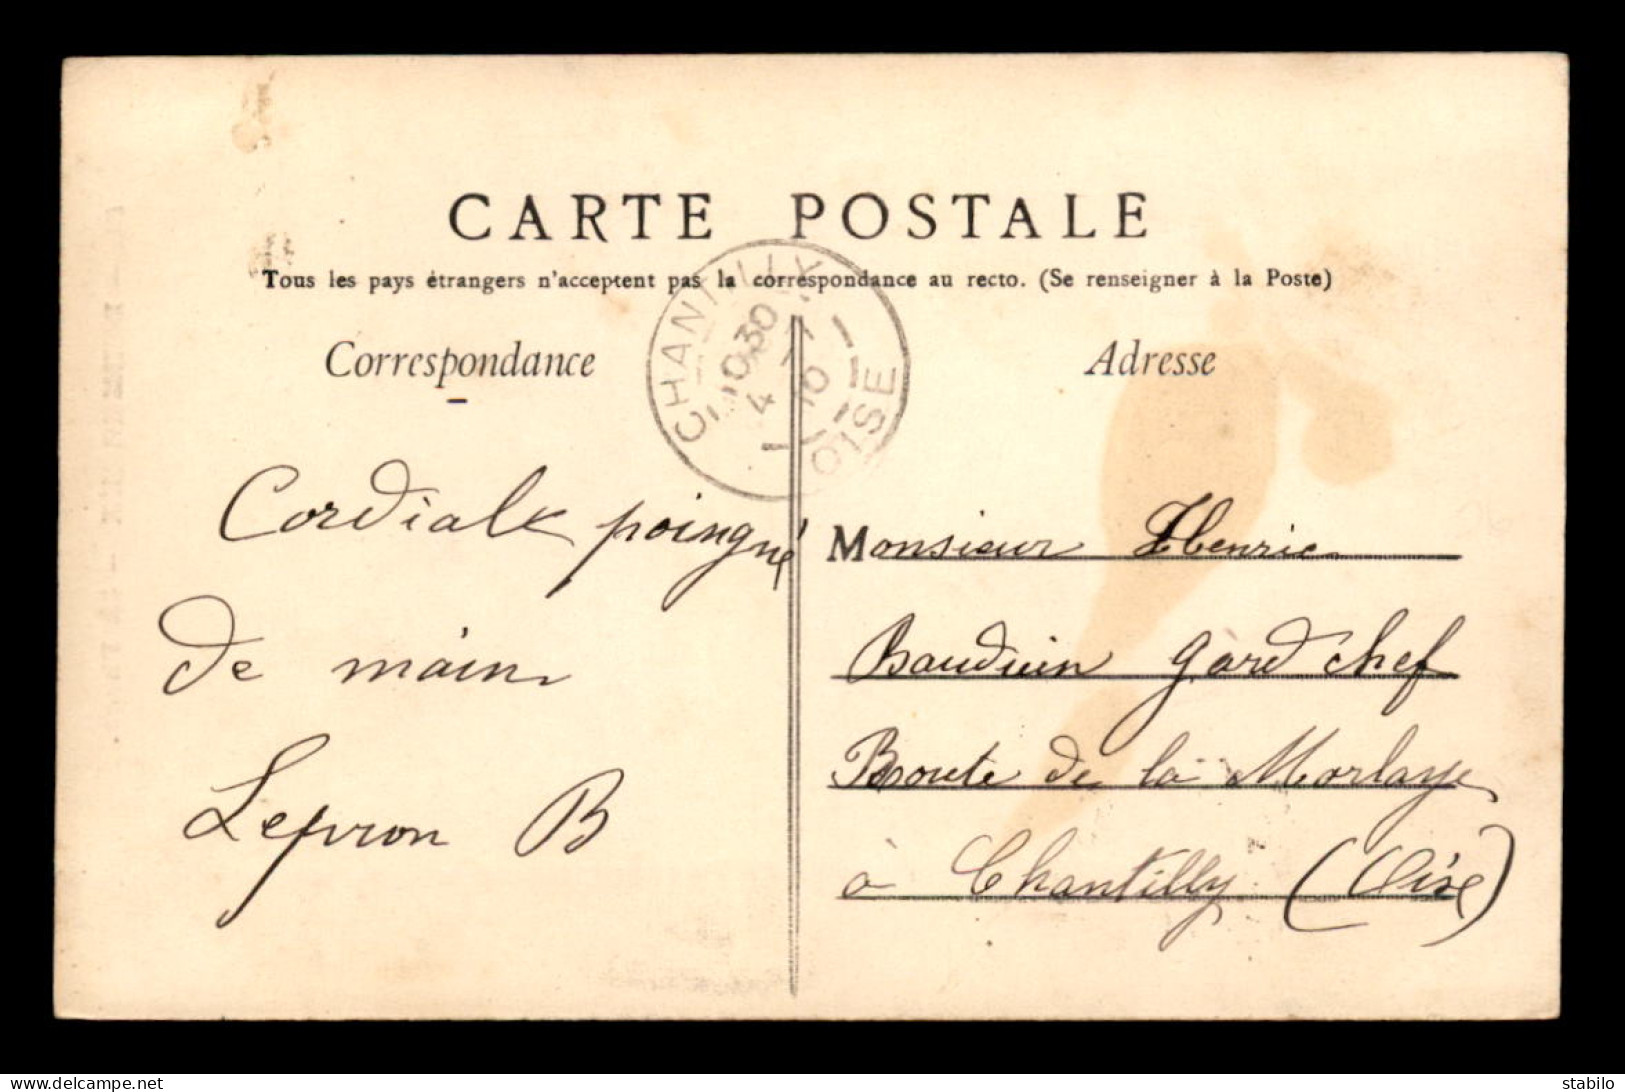 CARTE POSTALE
Tous les pays étrangers n'acceptent pas la correspondance au recto. (Se renseigner à la Poste)
CHANTILLY
10 30
4
10
OISE
Correspondance
Cordiale poingné
de main
Lepron B
Adresse
Monsieur Henric
Bauduin gard chef
Route de la Morlaye
à Chantilly (Oise)
stabilo